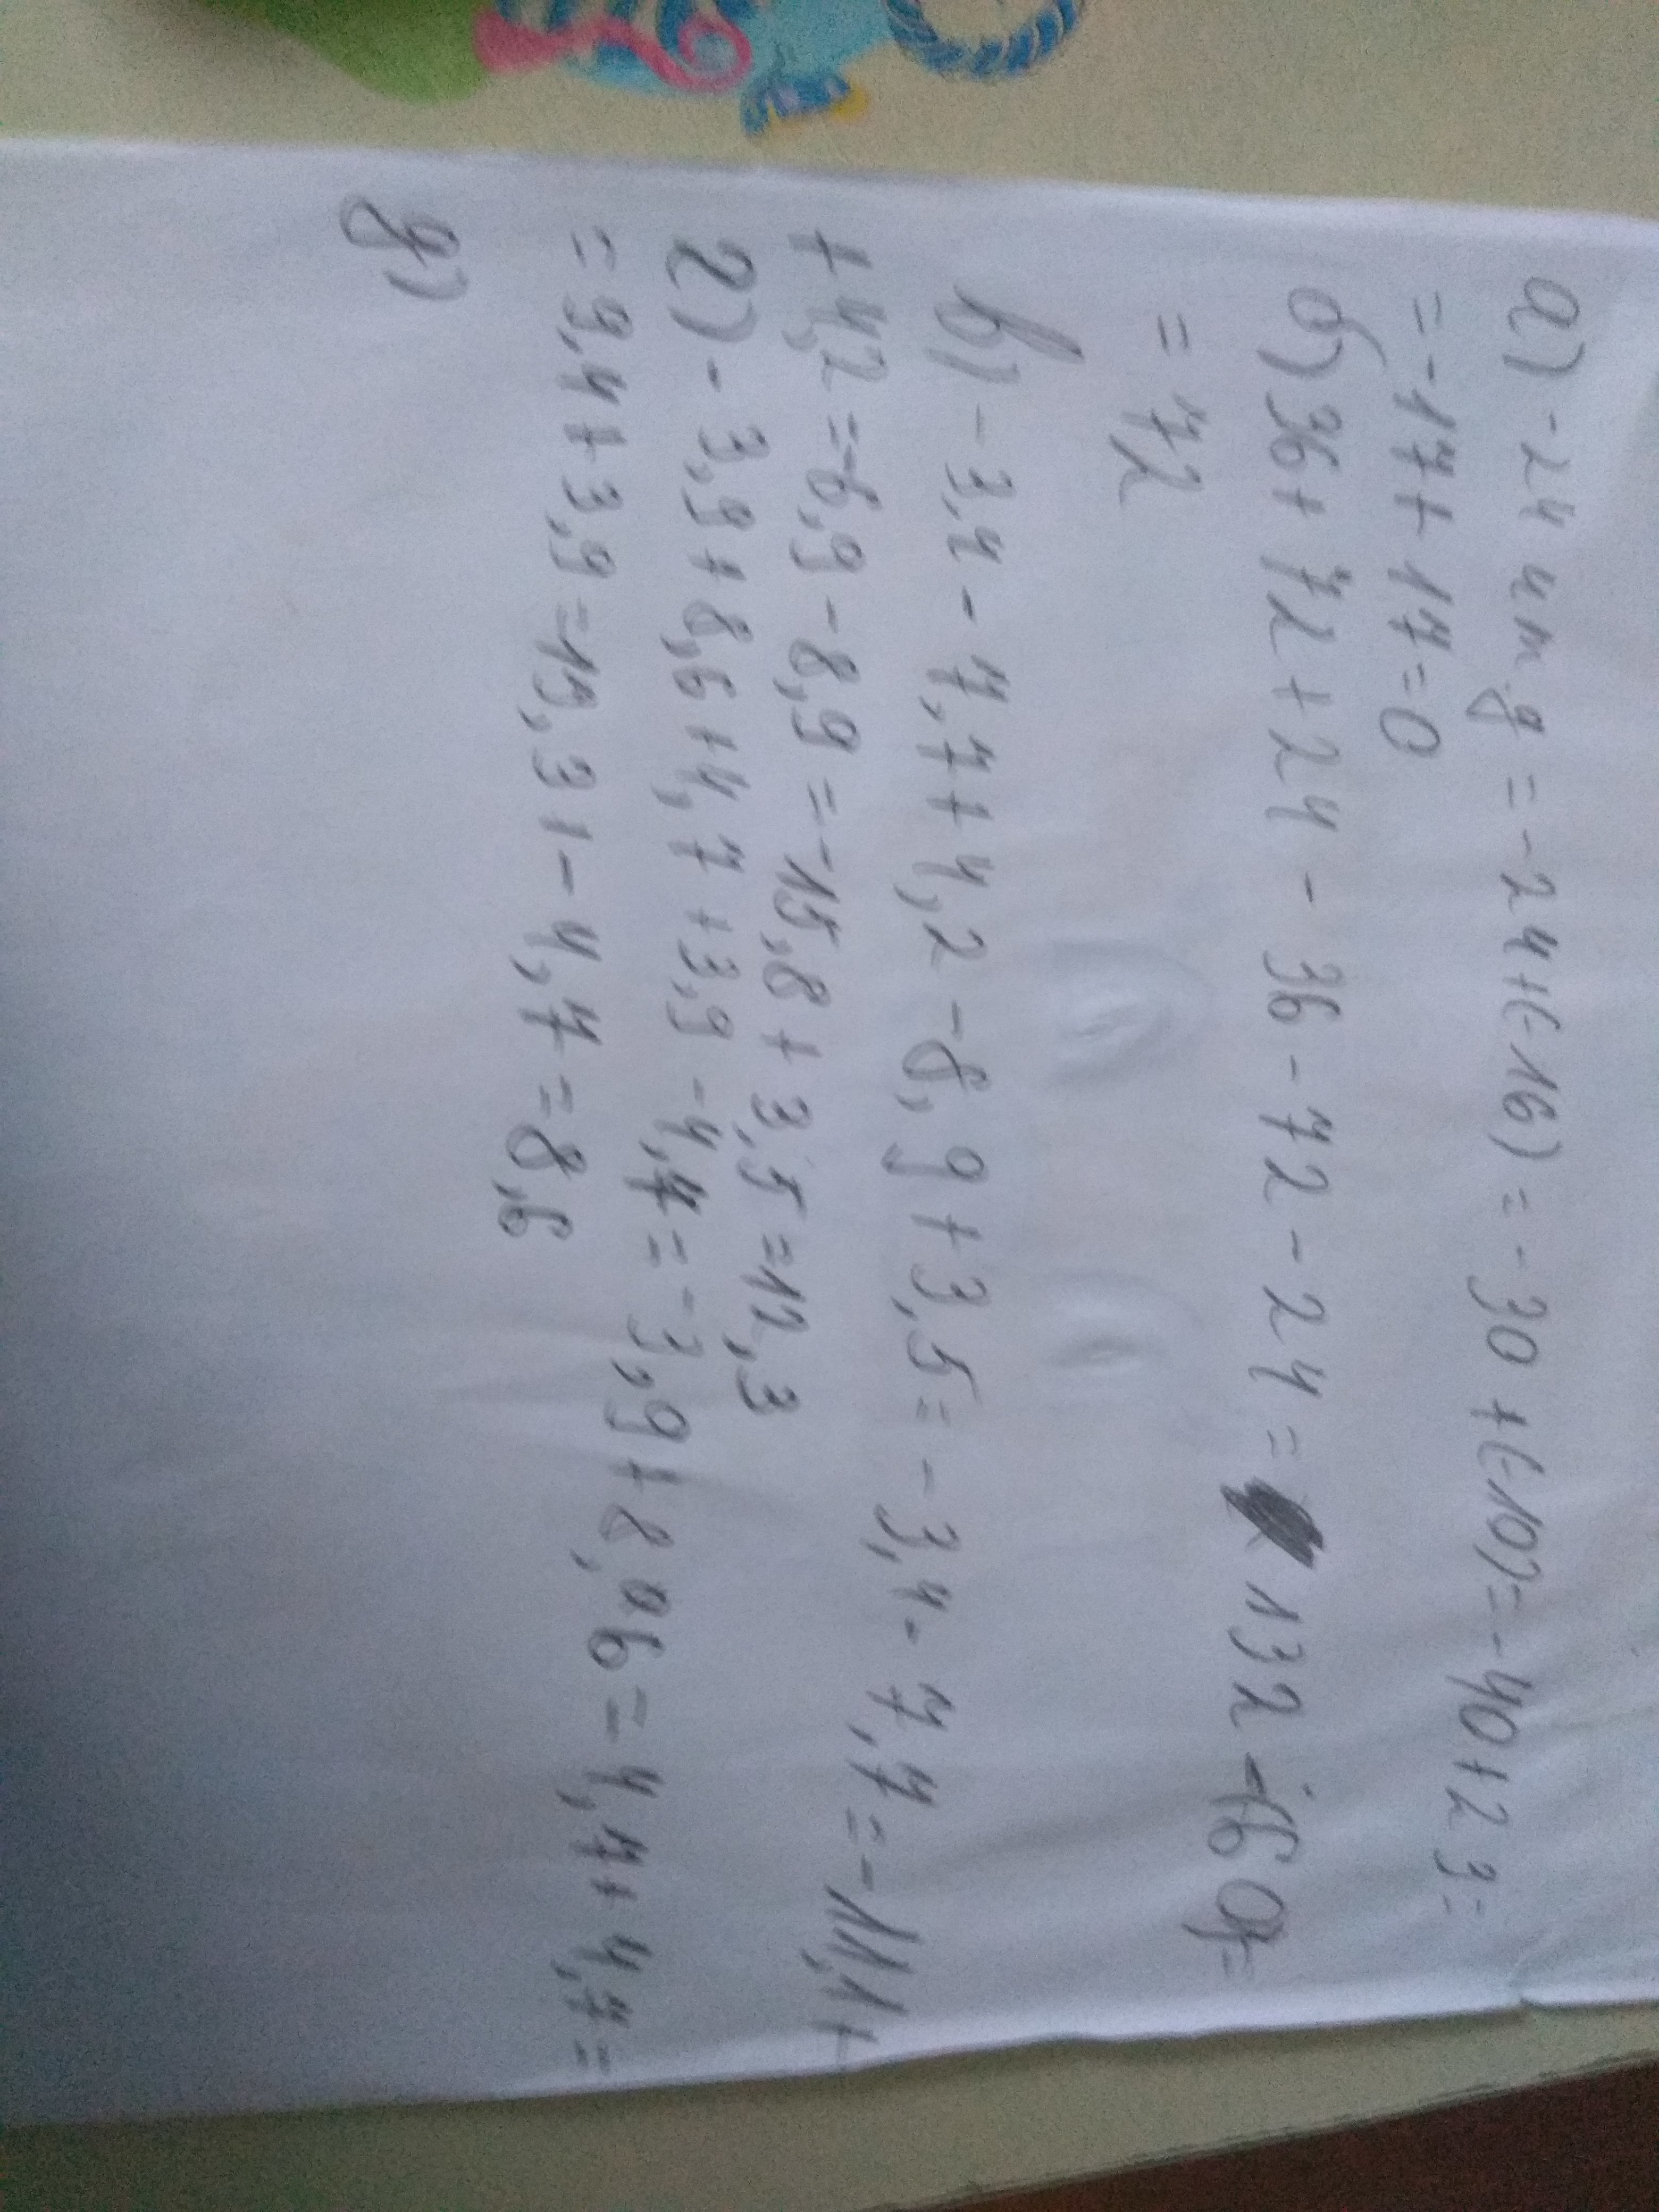 а) -24 и т.д = -24+(-16) = -30+(-10)= -40+23=
= -17+17=0
б) 36+72+24-36-72-24= 132-60=
= 72
в) -3,4-7,7+4,2-8,9+3,5= -3,4-7,7= -11,1+
+4,2=-6,9-8,9=-15,8+3,5=12,3
г) -3,9+8,6+4,7+3,9-4,7=-3,9+8,06=4,7+4,7=
=9,4+3,9=13,31-4,7=8,6
д)